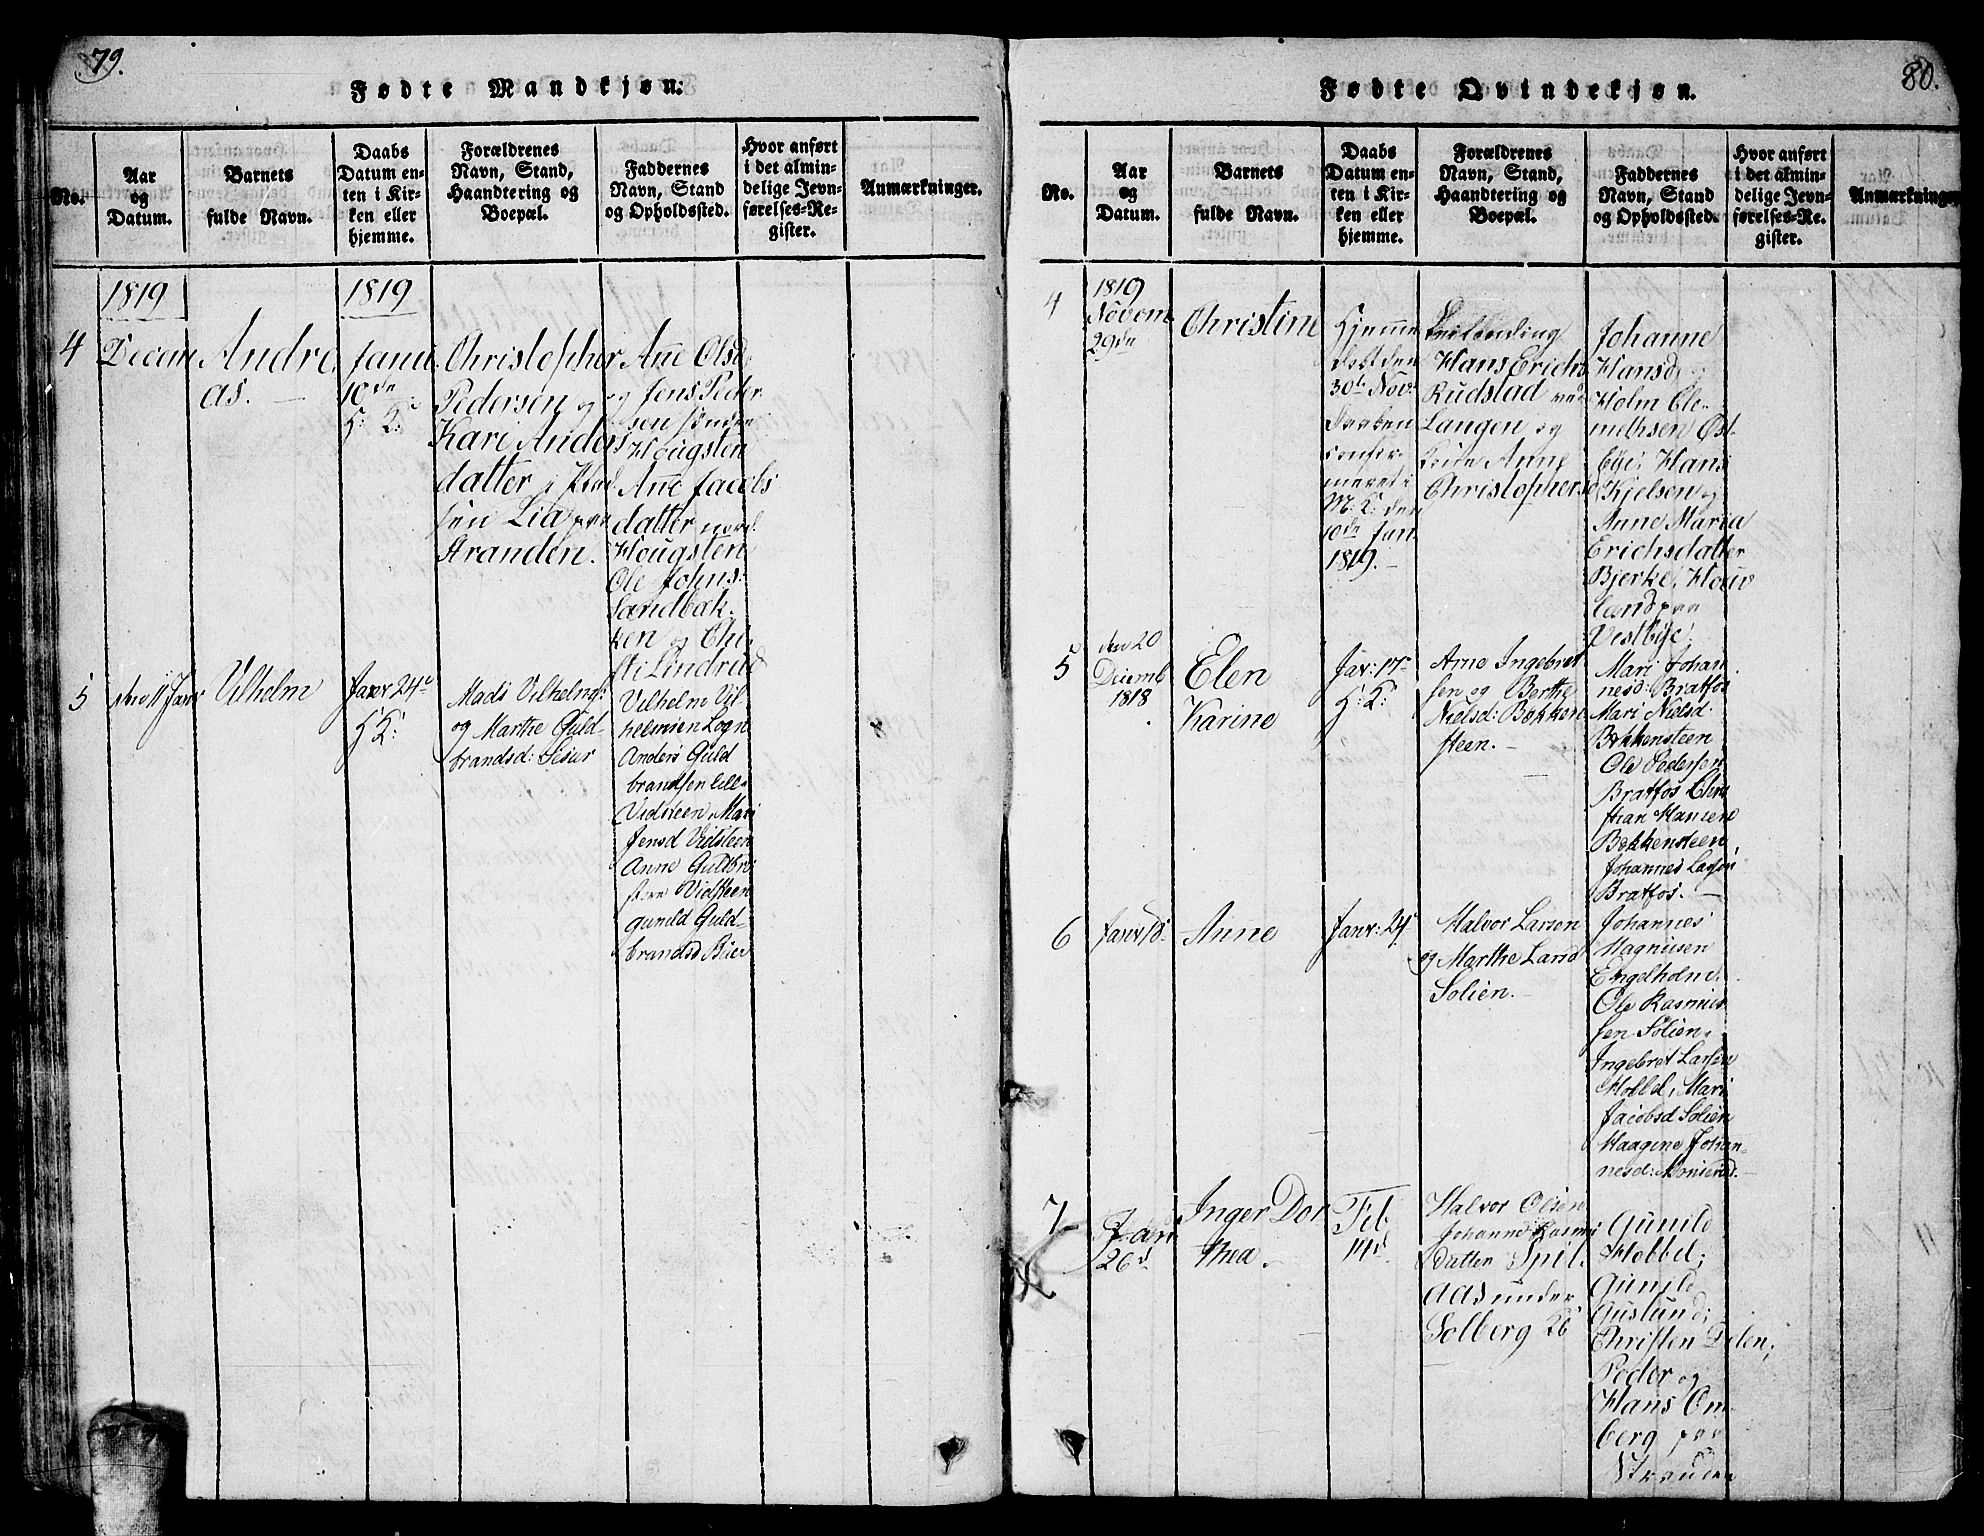 79.
Fødte Mandkjøn.
No.
Aar
og
Datum.
Barnets
fulde Navn.
Daabs
Datum en-
ten i Kir-
ken eller
hjemme.
Forældrenes
Navn, Stand,
Haandtering og
Boepæl.
Faddernes
Navn, Stand
og Opholdssted.
Hvor anført
i det almin-
delige Jevn-
førelses-Re-
gister.
Anmærkninger.
1819
1819
4
Decem
Andre
as.
Janu.
10de
H: K:
Christopher
Pedersen og
Kari Anders
datter
Lia paa
Stranden.
Ane Olsd
og Jens Peder
sen søndre
Hougsten
Ane Jacobs
datter nord.
Hougsten
Ole Johns:
Sandbak-
ken og Chi-
sti Lindrud
5
den 11 Janr
Vilhelm
Janr 24e
H K:
Mads Vilhelms:
og Marthe Guld
brandsd:
Vilhelm Vil-
helmsen Logn
Anders Guld
brandsen Lille
Vidsteen, Mari
Jensd Vidsteen
Anne Guldbr
Vidsteen
Gunild Guld-
brandsd Bier
80.
Fødte Qvindekjøn.
No.
Aar
og
Datum.
Barnets
fulde Navn.
Daabs
Datum en-
ten i Kir-
ken eller
hjemme.
Forældrenes
Navn, Stand,
Haandtering og
Boepæl.
Faddernes
Navn, Stand
og Opholdssted.
Hvor anført
i det almin-
delige Jevn-
førelses-Re-
gister.
Anmærkninger
4
1819
Novem
29de
Christine
Hjemme
døbt den
30te Nov:
Daaben
confir-
meret i
M: K: den
10de Jan
1819.
Hans Erichs
Rudstad ved
Langen og
Anne
Christophers
Johanne
Hansd og
Holm Cle-
methsen Øst-
bye, Hans
Kjelsen og
Anne Maria
Erichsdatter
Bjerke, Houv
land paa
Vestbye.
5
den 20
Decemb
1818
Elen
Karine
Jan: 17
H: K:
Arne Ingebret
sen og Berthe
Nielsd: Bekken
steen.
Mari Johan
nesd: Bratfos
Mari Nielsd:
Bekkensteen
Ole Pedersen
Bratfos Chri
stian Hansen
Bekkensteen
Johannes Larsen
Bratfos.
6
Anne
Janr: 24
Halvor Larsen
og Marthe Larsd
Solien.
Johannes
Magnusen
Engelholm,
Ole Rasmus
sen Solien,
Ingebret Larsen
Hobbel, Mari
Jacobsd Solien
Haagine Johan-
nesd:
7
Jan
26d
Inger Dor
thea.
Feb
14d
Halvor Olsen
Johanne Rasmus
Datter Spil-
aas under
Solberg 26
Gunild
Hobbel;
Gunild
Guslund;
Christen Delen;
Peder og
Hans Om-
berg paa
Stranden